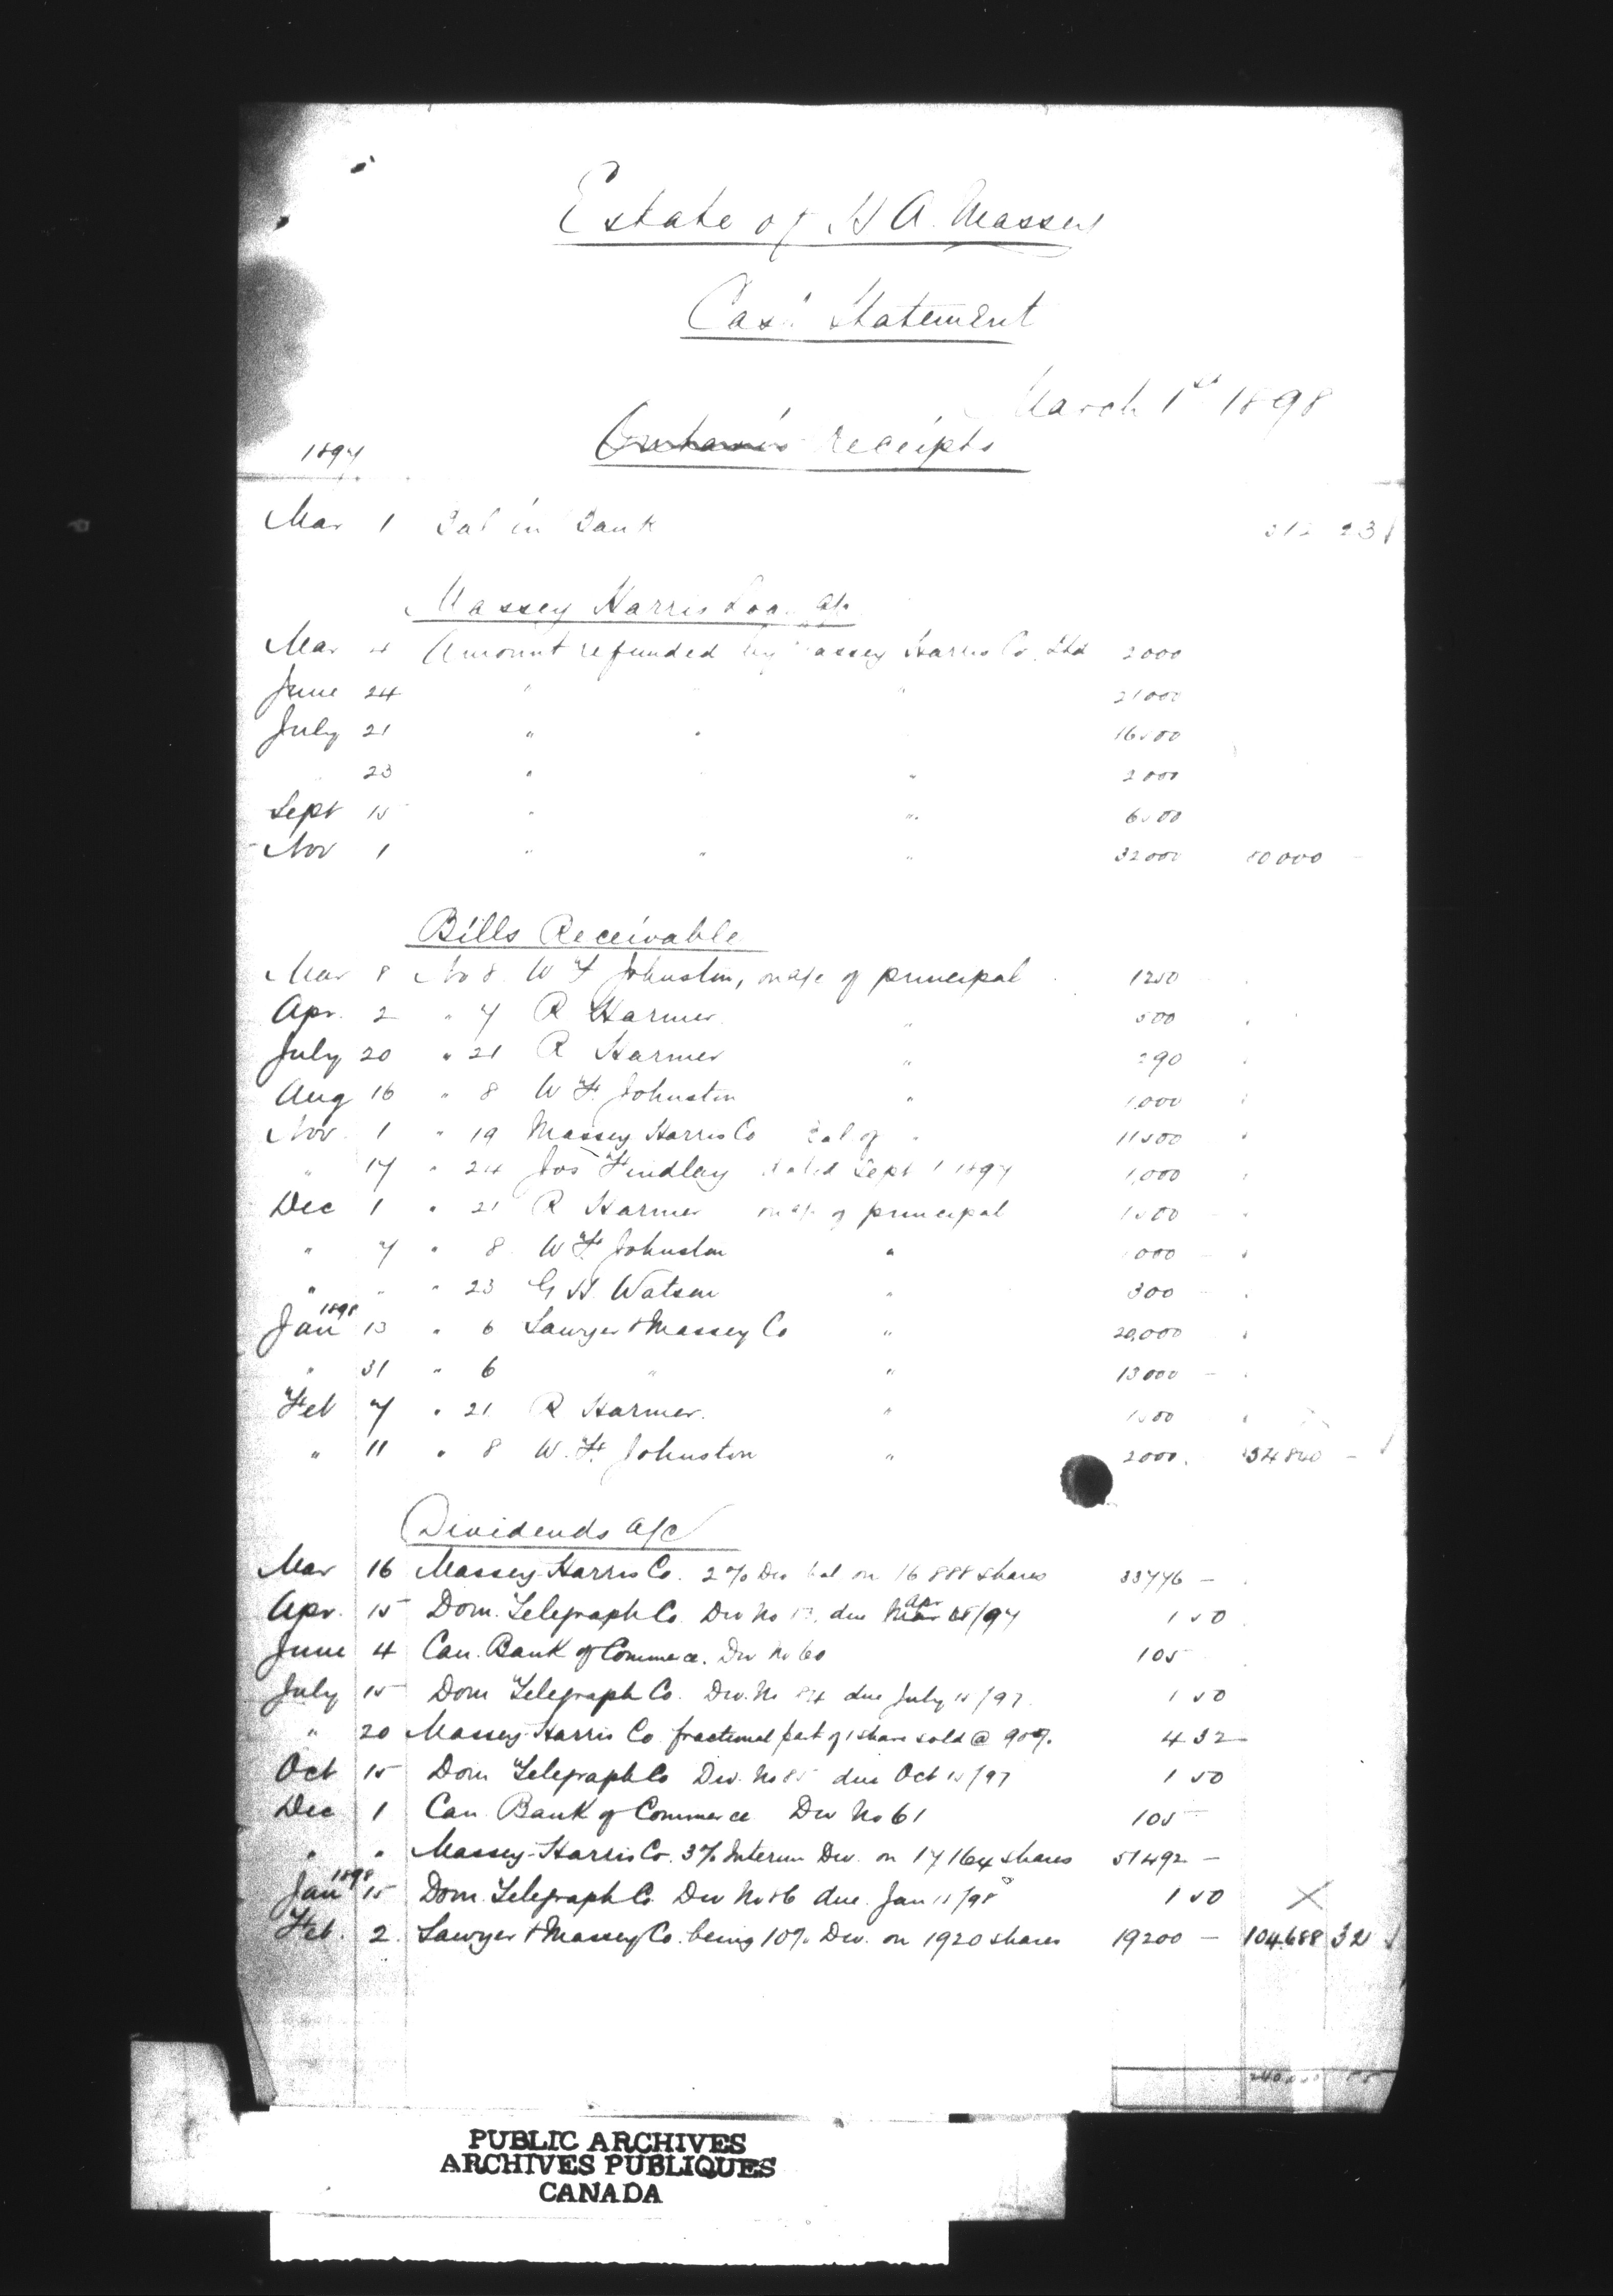 Estate of H A. Massey
Cash Statement
March 1st 1898
Receipts
1897
Mar 1 Bal in Bank 312 23
Massey Harris Loan a/c
Mar 4 Amount refunded by Massey Harris Co. Ltd 2000
June 24 " " " 21000
July 21 " " 16500
23 " " " 2000
Sept 15 " " 6500
Nov 1 " " " 32000 80000 —
Bills Receivable
Mar 8 No 8. W F Johnston, on a/c of principal 1250
Apr. 2 " 7 R Harmer " 500
July 20 " 21 R Harmer " 290
Aug 16 " 8 W F. Johnston " 1,000
Nov. 1 " 19 Massey Harris Co Bal of " 11500
" 17 " 24 Jos Findlay dated Sept 1 1897 1,000
Dec 1 " 21 R Harmer on a/c of principal 1500
" 7 " 8 W F. Johnston " 1000
" " " 23 G H. Watson " 300
1898
Jan 13 " 6 Sawyer & Massey Co " 20,000
" 31 " 6 " " 13000 —
Feb 7 " 21 R Harmer. " 1500
" 11 " 8 W. F. Johnston " 2000. 54840 —
Dividends a/c
Mar 16 Massey-Harris Co. 2% Div bal on 16888 shares 33776 —
Apr. 15 Dom. Telegraph Co. Div No due Apr 15/97 1 50
June 4 Can. Bank of Commerce. Div No 60 105
July 15 Dom Telegraph Co. Div. No 84 due July 15/97. 1 50
" 20 Massey-Harris Co. fractional part of 1 share sold @ 90%. 4 32
Oct 15 Dom Telegraph Co Div. No 85 due Oct 15/97 1 50
Dec 1 Can. Bank of Commerce Div No 61 105
" " Massey-Harris Co. 3% Interim Div. on 17164 shares 51492 —
1898
Jan 15 Dom. Telegraph Co. Div No 86 due. Jan 15/98 1 50
Feb. 2. Sawyer & Massey Co. being 10% Div. on 1920 shares 19200 — 104688 32
PUBLIC ARCHIVES
ARCHIVES PUBLIQUES
CANADA